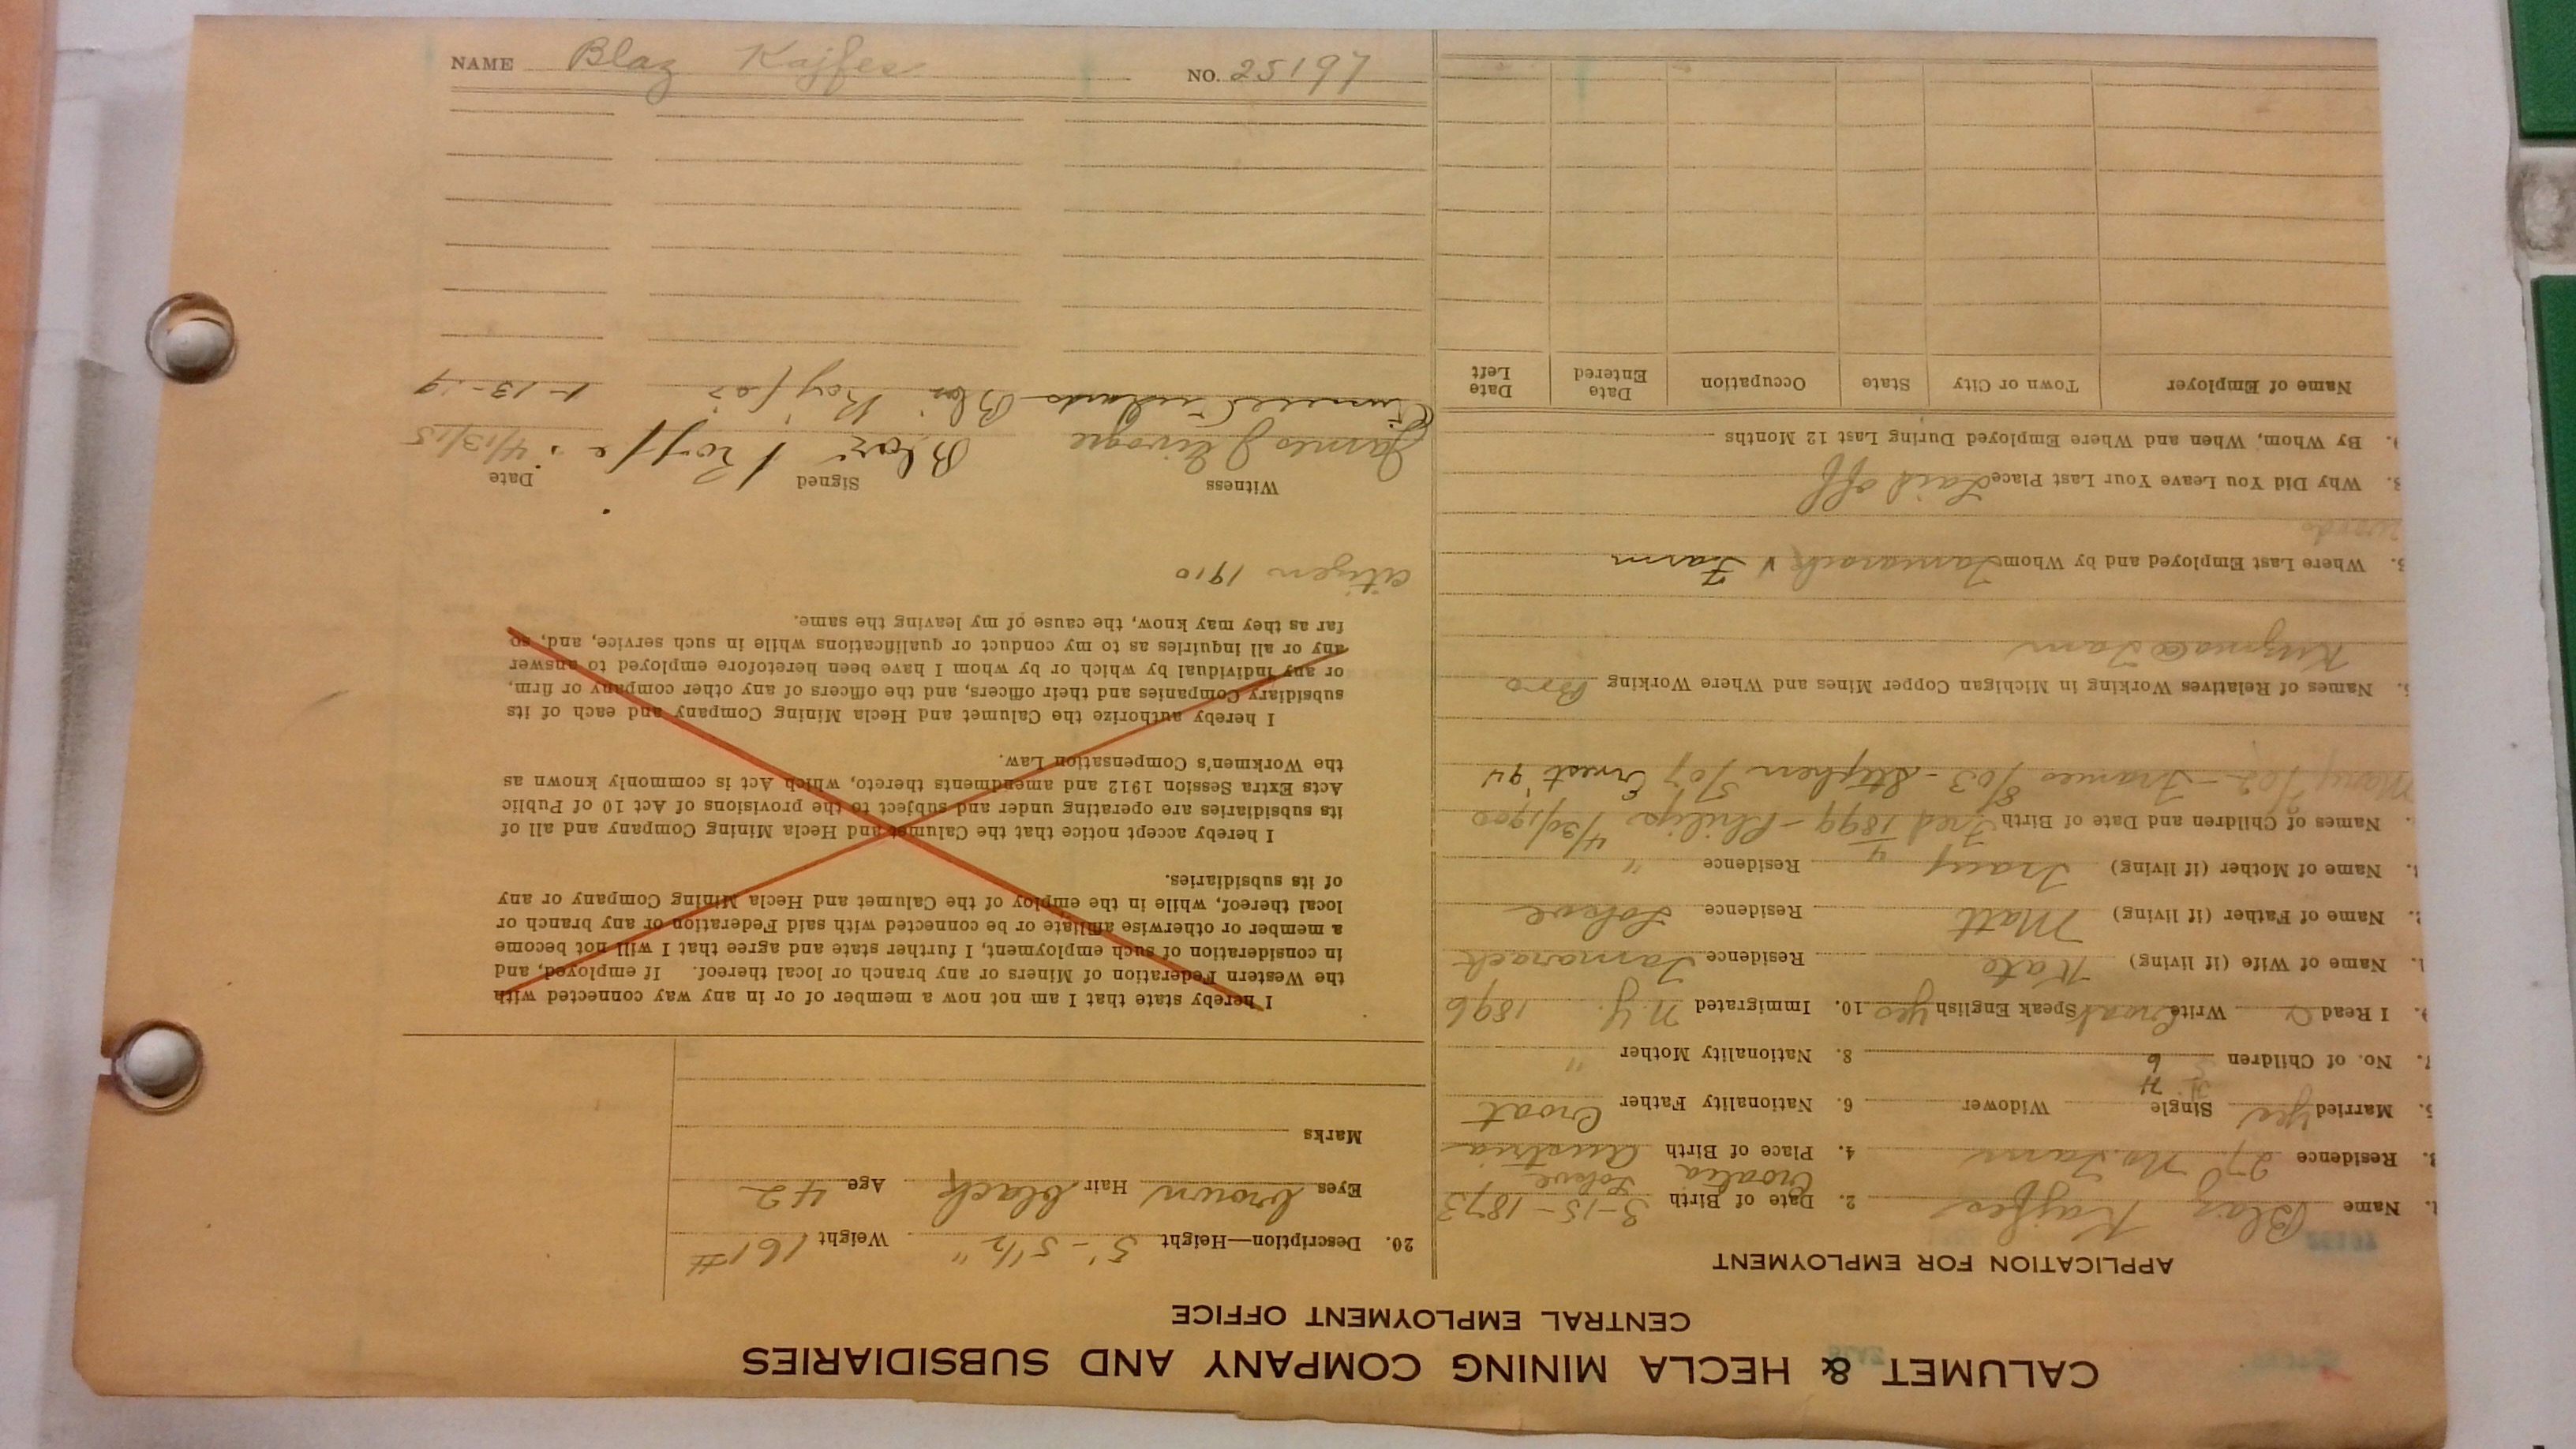 CALUMET & HECLA MINING COMPANY AND SUBSIDIARIES
CENTRAL EMPLOYMENT OFFICE
APPLICATION FOR EMPLOYMENT
Name Blaz Kajfes 2. Date of Birth 3-15-1873
Croatia Lokve
Residence 270 No. Tam 4. Place of Birth Austria
Married yes Single Widower 6. Nationality Father Croat
No. of Children 6 8. Nationality Mother "
I Read Write Croat Speak English yes 10. Immigrated N.Y. 1896
Name of Wife (if living) Kate Residence Tamarack
Name of Father (if living) Matt Residence Lokve
Name of Mother (if living) Tracy Residence "
Names of Children and Date of Birth Fred 4/1899 - Philip 4/30/1900
Mary 9/02 - Frances 8/03 - Stephen 5/07 Ernest '94
Names of Relatives Working in Michigan Copper Mines and Where Working Bro
@ Tam
Where Last Employed and by Whom Tamarack Farm
Why Did You Leave Your Last Place Laid off
By Whom, When and Where Employed During Last 12 Months
Name of Employer Town or City State Occupation Date Entered Date Left
20. Description—Height 5'-5½" Weight 161#
Eyes brown Hair black Age 42
Marks
I hereby state that I am not now a member of or in any way connected with
the Western Federation of Miners or any branch or local thereof. If employed, and
in consideration of such employment, I further state and agree that I will not become
a member or otherwise affiliate or be connected with said Federation or any branch or
local thereof, while in the employ of the Calumet and Hecla Mining Company or any
of its subsidiaries.
I hereby accept notice that the Calumet and Hecla Mining Company and all of
its subsidiaries are operating under and subject to the provisions of Act 10 of Public
Acts Extra Session 1912 and amendments thereto, which Act is commonly known as
the Workmen's Compensation Law.
I hereby authorize the Calumet and Hecla Mining Company and each of its
subsidiary Companies and their officers, and the officers of any other company or firm,
or any individual by which or by whom I have been heretofore employed to answer
any or all inquiries as to my conduct or qualifications while in such service, and, so
far as they may know, the cause of my leaving the same.
citizen 1910
Witness Signed Date
James 4/13/15
1-13-19
NAME Blaz Kajfes NO. 25197